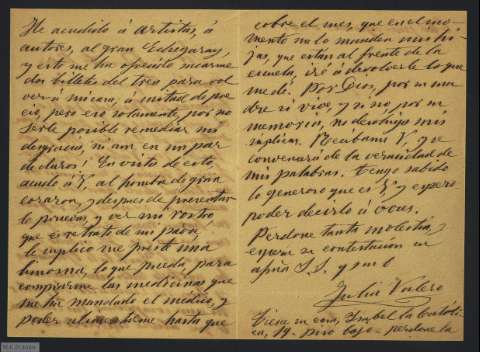 He acudido á artistas, á
autores, al gran Echegaray,
y este me ha ofrecido sacarme
dos billetes del tren para vol
ver á mi casa, á mitad de pre
cio, pero eso solamente, por no
serle posible remediar mi
desgracia, ni aun en un par
de duros! En vista de esto,
acudo á V, al hombre de gran
corazon, y despues de presentar
le pruebas, y ver mi rostro
que es retrato de mi padre,
le suplico me preste una
limosna, lo que pueda, para
comprarme las medicinas que
me ha mandado el médico, y
poder alimentarme hasta que
cobre el mes, que en el mo
mento me lo manden mis hi
jas, que estan al frente de la
escuela, iré a devolverle lo que
me dé. Por Dios, por su ma
dre si vive, y si no por su
memoria, no desoiga mi
súplica. Recíbame V, y se
convencerá de la veracidad de
mis palabras. Tengo sabido
lo generoso que es V y espero
poder decirlo á voces.
Perdone tanta molestia,
y espera su contestacion su
afma S.S. q s m b
Julia Valero
Tiene su casa, Isabel la Católi
ca, 19, piso bajo. perdone la